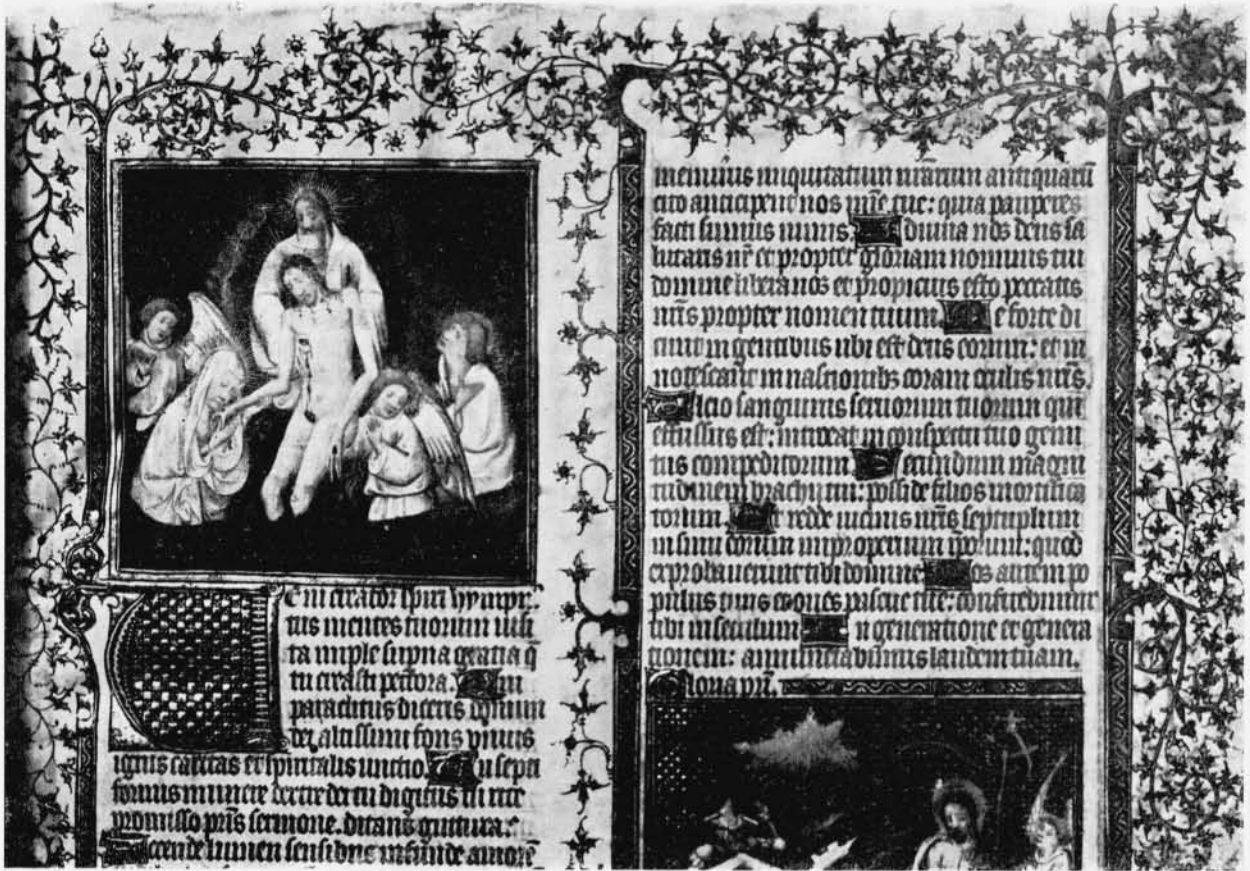 Ueni creator spiri
tus mentes tuorum uisi
ta imple supna gratia q̄
tu creasti pectora. Qui
paraclitus diceris donum
dei altissimi fons uiuus
ignis caritas et spiritalis unctio. Tu septi
formis munere dextre dei tu digitus tu rite
promisso prīs sermone. ditans guttura.
Accende lumen sensibus infunde amorē
memineris iniquitatum nrārum antiquarū
cito anticipent nos mīe tue: quia pauperes
facti sumus nimis. Adiuua nos deus sa
lutaris nr̄ et propter gloriam nominis tui
domine libera nos et propicius esto peccatis
nrīs propter nomen tuum. Ne forte di
cant in gentibus ubi est deus eorum: et in
notescant in nationibs coram oculis nrīs.
Ulcio sanguinis seruorum tuorum qui
effusus est: introeat in conspectu tuo gemi
tus compeditorum. Secundum magni
tudinem brachii tui: posside filios mortifica
torum. Et redde uicinis nrīs septuplum
in sinu eorum improperium ipsorum: quod
exprobrauerunt tibi domine. Nos autem po
pulus tuus et oues pascue tue: confitebimur
tibi in seculum. In generatione et genera
tionem: annunciabimus laudem tuam.
Gloria prī.